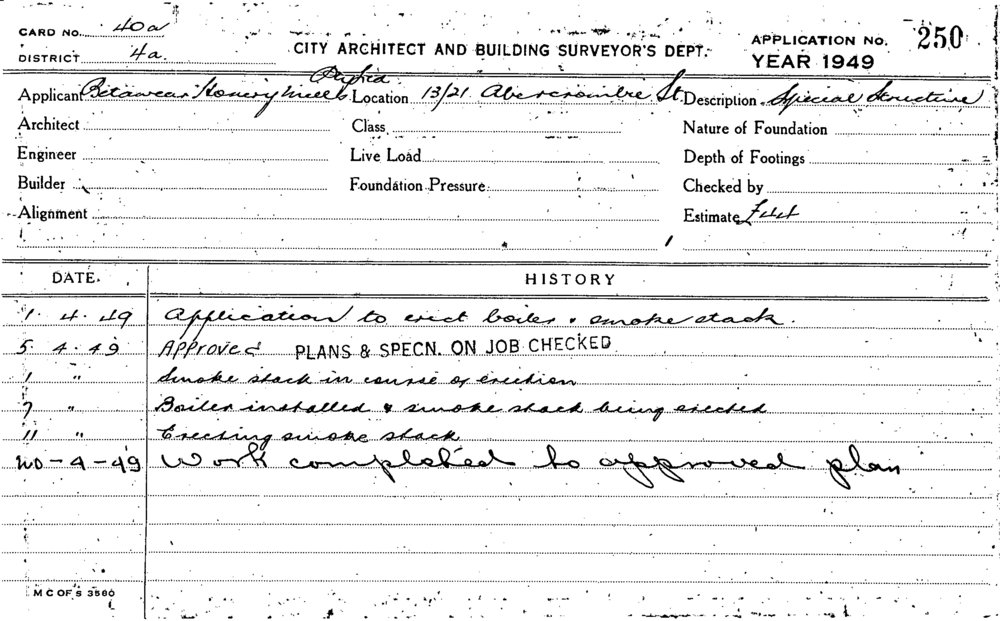 CARD NO. 40a
DISTRICT 4a.
CITY ARCHITECT AND BUILDING SURVEYOR'S DEPT.
APPLICATION NO. 250
YEAR 1949
Applicant Hosiery Mills Location 13/21 Abercrombie St. Description Special Structure
Architect Class Nature of Foundation
Engineer Live Load Depth of Footings
Builder Foundation Pressure Checked by
Alignment Estimate
DATE. HISTORY
1. 4. 49 Application to erect boiler & smoke stack.
5. 4. 49 Approved PLANS & SPECN. ON JOB CHECKED
1 " Smoke stack in course of erection
7 " Boiler installed & smoke stack being erected
11 " Erecting smoke stack
20-4-49 Work completed to approved plan
M C OF S 3560